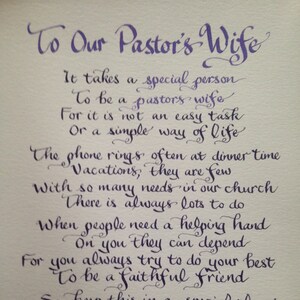 To Our Pastor's Wife
It takes a special person
To be a pastors wife
For it is not an easy task
Or a simple way of life
The phone rings often at dinner time
Vacations, they are few
With so many needs in our church
There is always lots to do
When people need a helping hand
On you they can depend
For you always try to do your best
To be a faithful friend